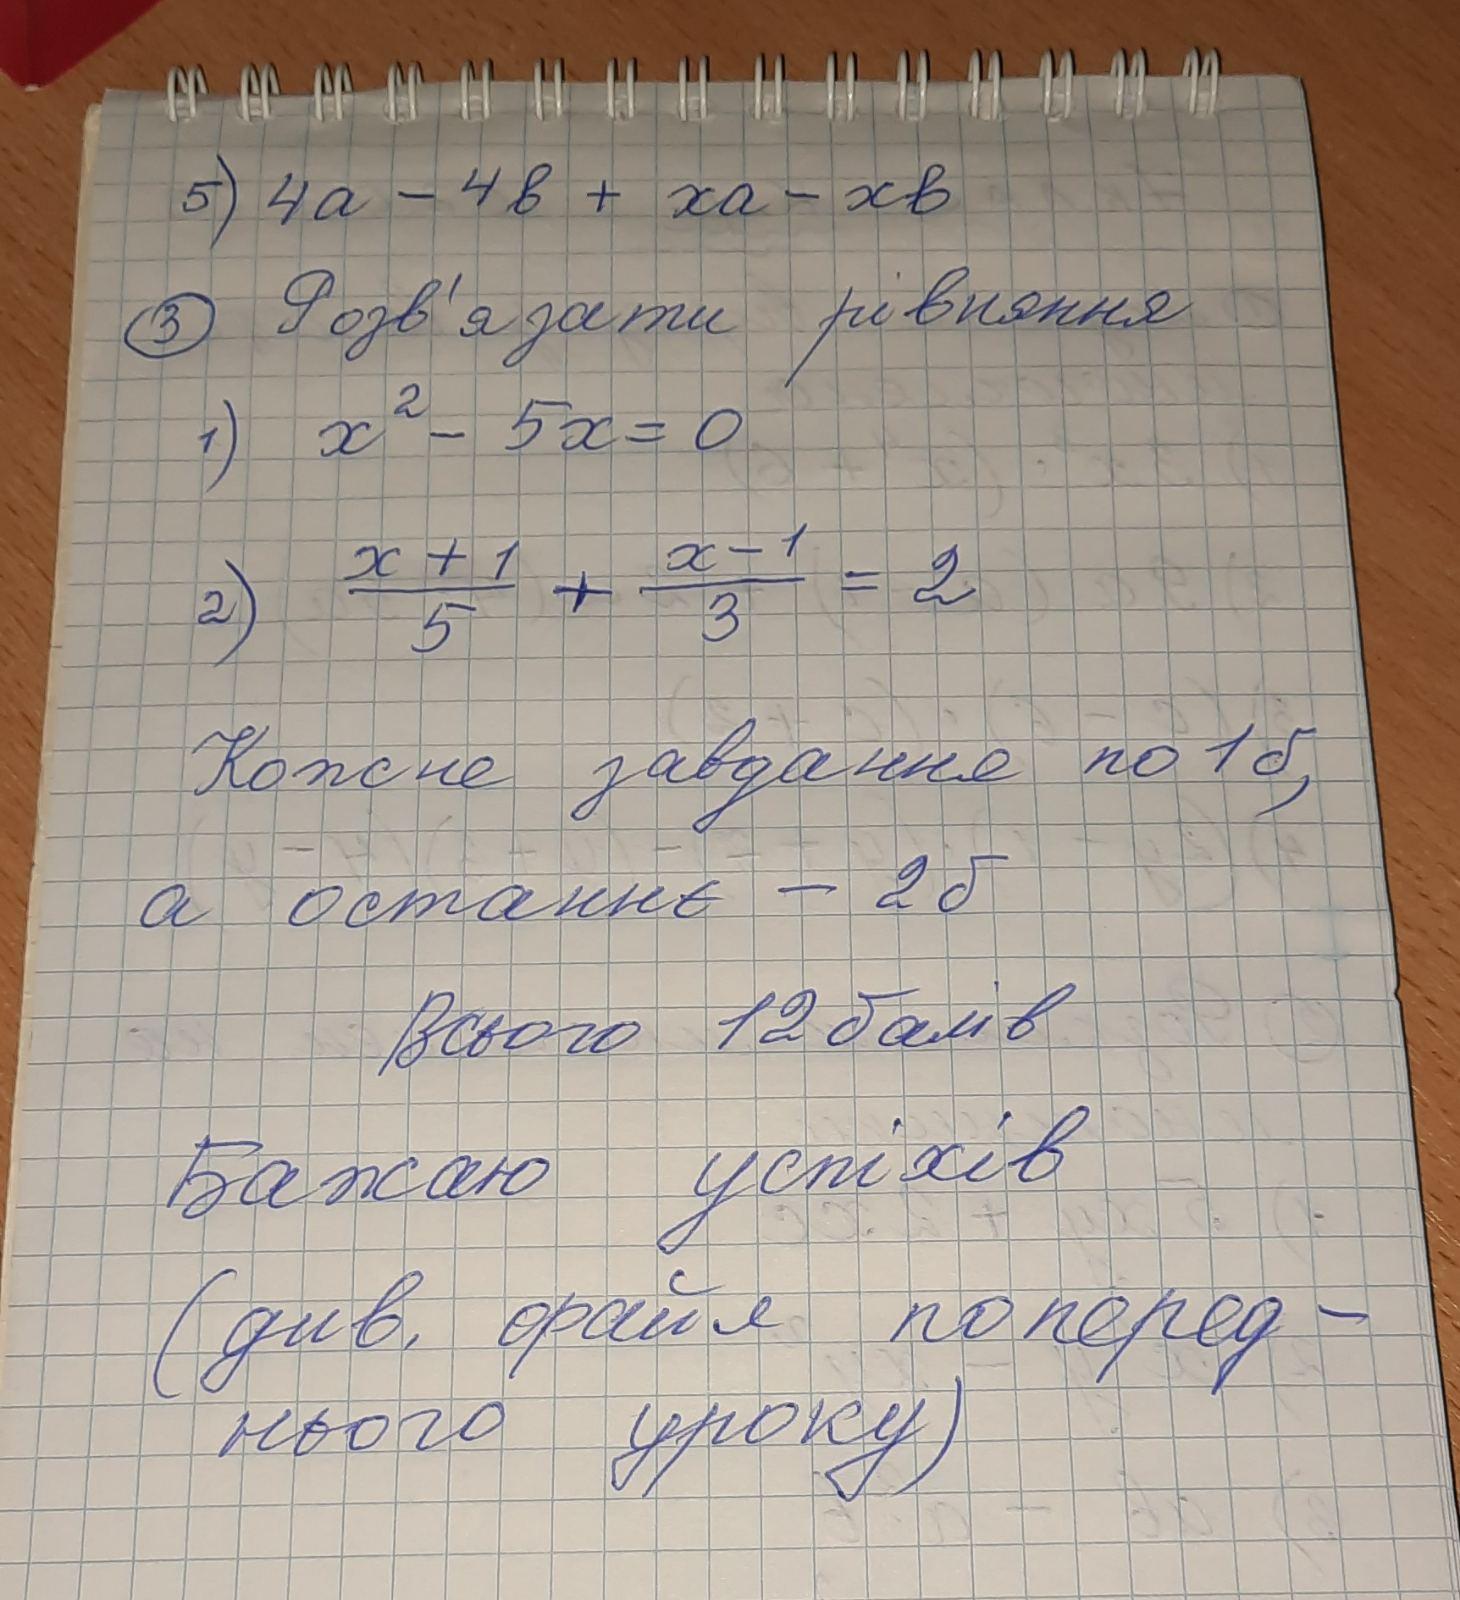 5) 4a - 4b + xa - xb
3 Розв'язати рівняння
1) x² - 5x = 0
2) \frac{x+1}{5} + \frac{x-1}{3} = 2
Кожне завдання по 1б,
а останнє - 2б
Всього 12 балів
Бажаю успіхів
(див. файл поперед-
нього уроку)